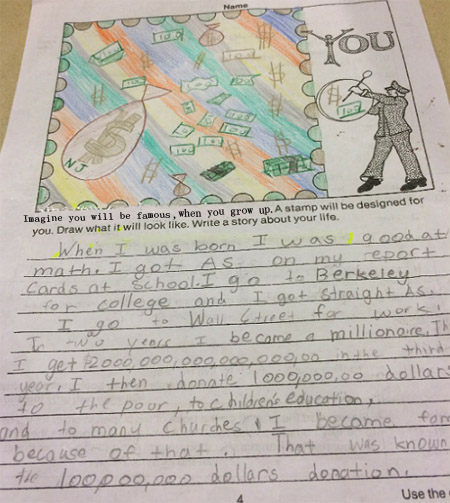 Name
YOU
100
$
NJ
Imagine you will be famous,when you grow up.A stamp will be designed for
you. Draw what it will look like. Write a story about your life.
When I was born I was good at
math. I got As on my report
Cards at school. I go to Berkeley
for college and I got straight As.
I go to Wall Street for work.
In two years I became a millionaire. Th
I get 2000,000,000,000,000,00 in the third
year. I then donate 1000,000,00 dollars
to the pour, to children's education,
and to many churches. I became fam
because of that. That was known
the 100,000,000 dollars donation.
4
Use the